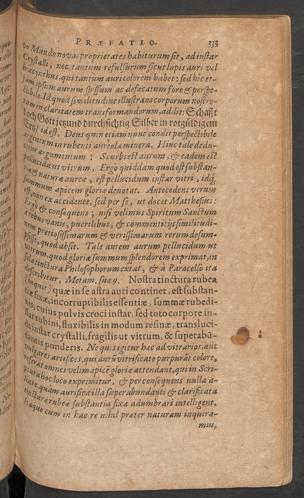 PRÆFATIO. 333
vo Mundo novas proprietates habiturum sit, ad instar
Crystalli, nec tantum refulsurum sicut lapis auri vel
hyacynthus, qui tantum auri colorem habet: sed hic et-
iam ipsum aurum spissum ac defæcatum fore & perspe-
Id quod similitudine illustrat corporum nostro-
rum in claritatem transformandorum, addit: Schafft
doch Gott jetzund durchsichtig Silber in rotgüldigem
Ertz/ id est. Deus quin etiam nunc condit perspectibile
argentum in rubenti aureola minera. Hinc tale dedu-
argumentum: Si urbs est aurum, & eadem est
pellucida ut vitrum. Ergo quiddam quod est substan-
& natura aurea, est pellucidum instar vitri, idq́
summum apicem gloriæ denotat. Antecedens verum
ex accidente, sed per se, ut docet Matthesius:
Ergo & consequens; nisi velimus Spiritum Sanctum
vanis, puerilibus, & commentitiis similitudi-
pretiosissimarum & verissimarum rerum desum-
quod absit. Tale autem aurum pellucidum ut
quod gloriæ summum splendorem exprimat, in
tinctura Philosophorum extat, & à Paracelso ita
describitur, Metam. sue 9. Nostra tinctura rubea
quæ in se astra auri continet. est substan-
fixæ, incorruptibilis essentiæ, summæ rubedi-
cuius pulvis croci instar. sed toto corpore in-
rubini, fluxibilis in modum resinæ, transluci-
instar crystalli, fragilis ut vitrum, & superabũ-
ponderis. Ne quis igitur hæc ad vitrarios, aut
vulgares artifices, qui aurũ vitrificato purpurāt colore,
omnes velim apicē gloriæ attendant, qui in Scri-
hoc loco exprimitur, & per consequens nulla a-
quàm aurifica illa superabundanti & clarificata
instar rubea substantia fixa adumbrari intelligent.
cum in hac re nihil præter naturam inquira-
mus,